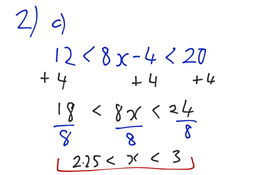 2) c)
12 < 8x - 4 < 20
+4 +4 +4
18 < 8x < 24
8 8 8
2.25 < x < 3